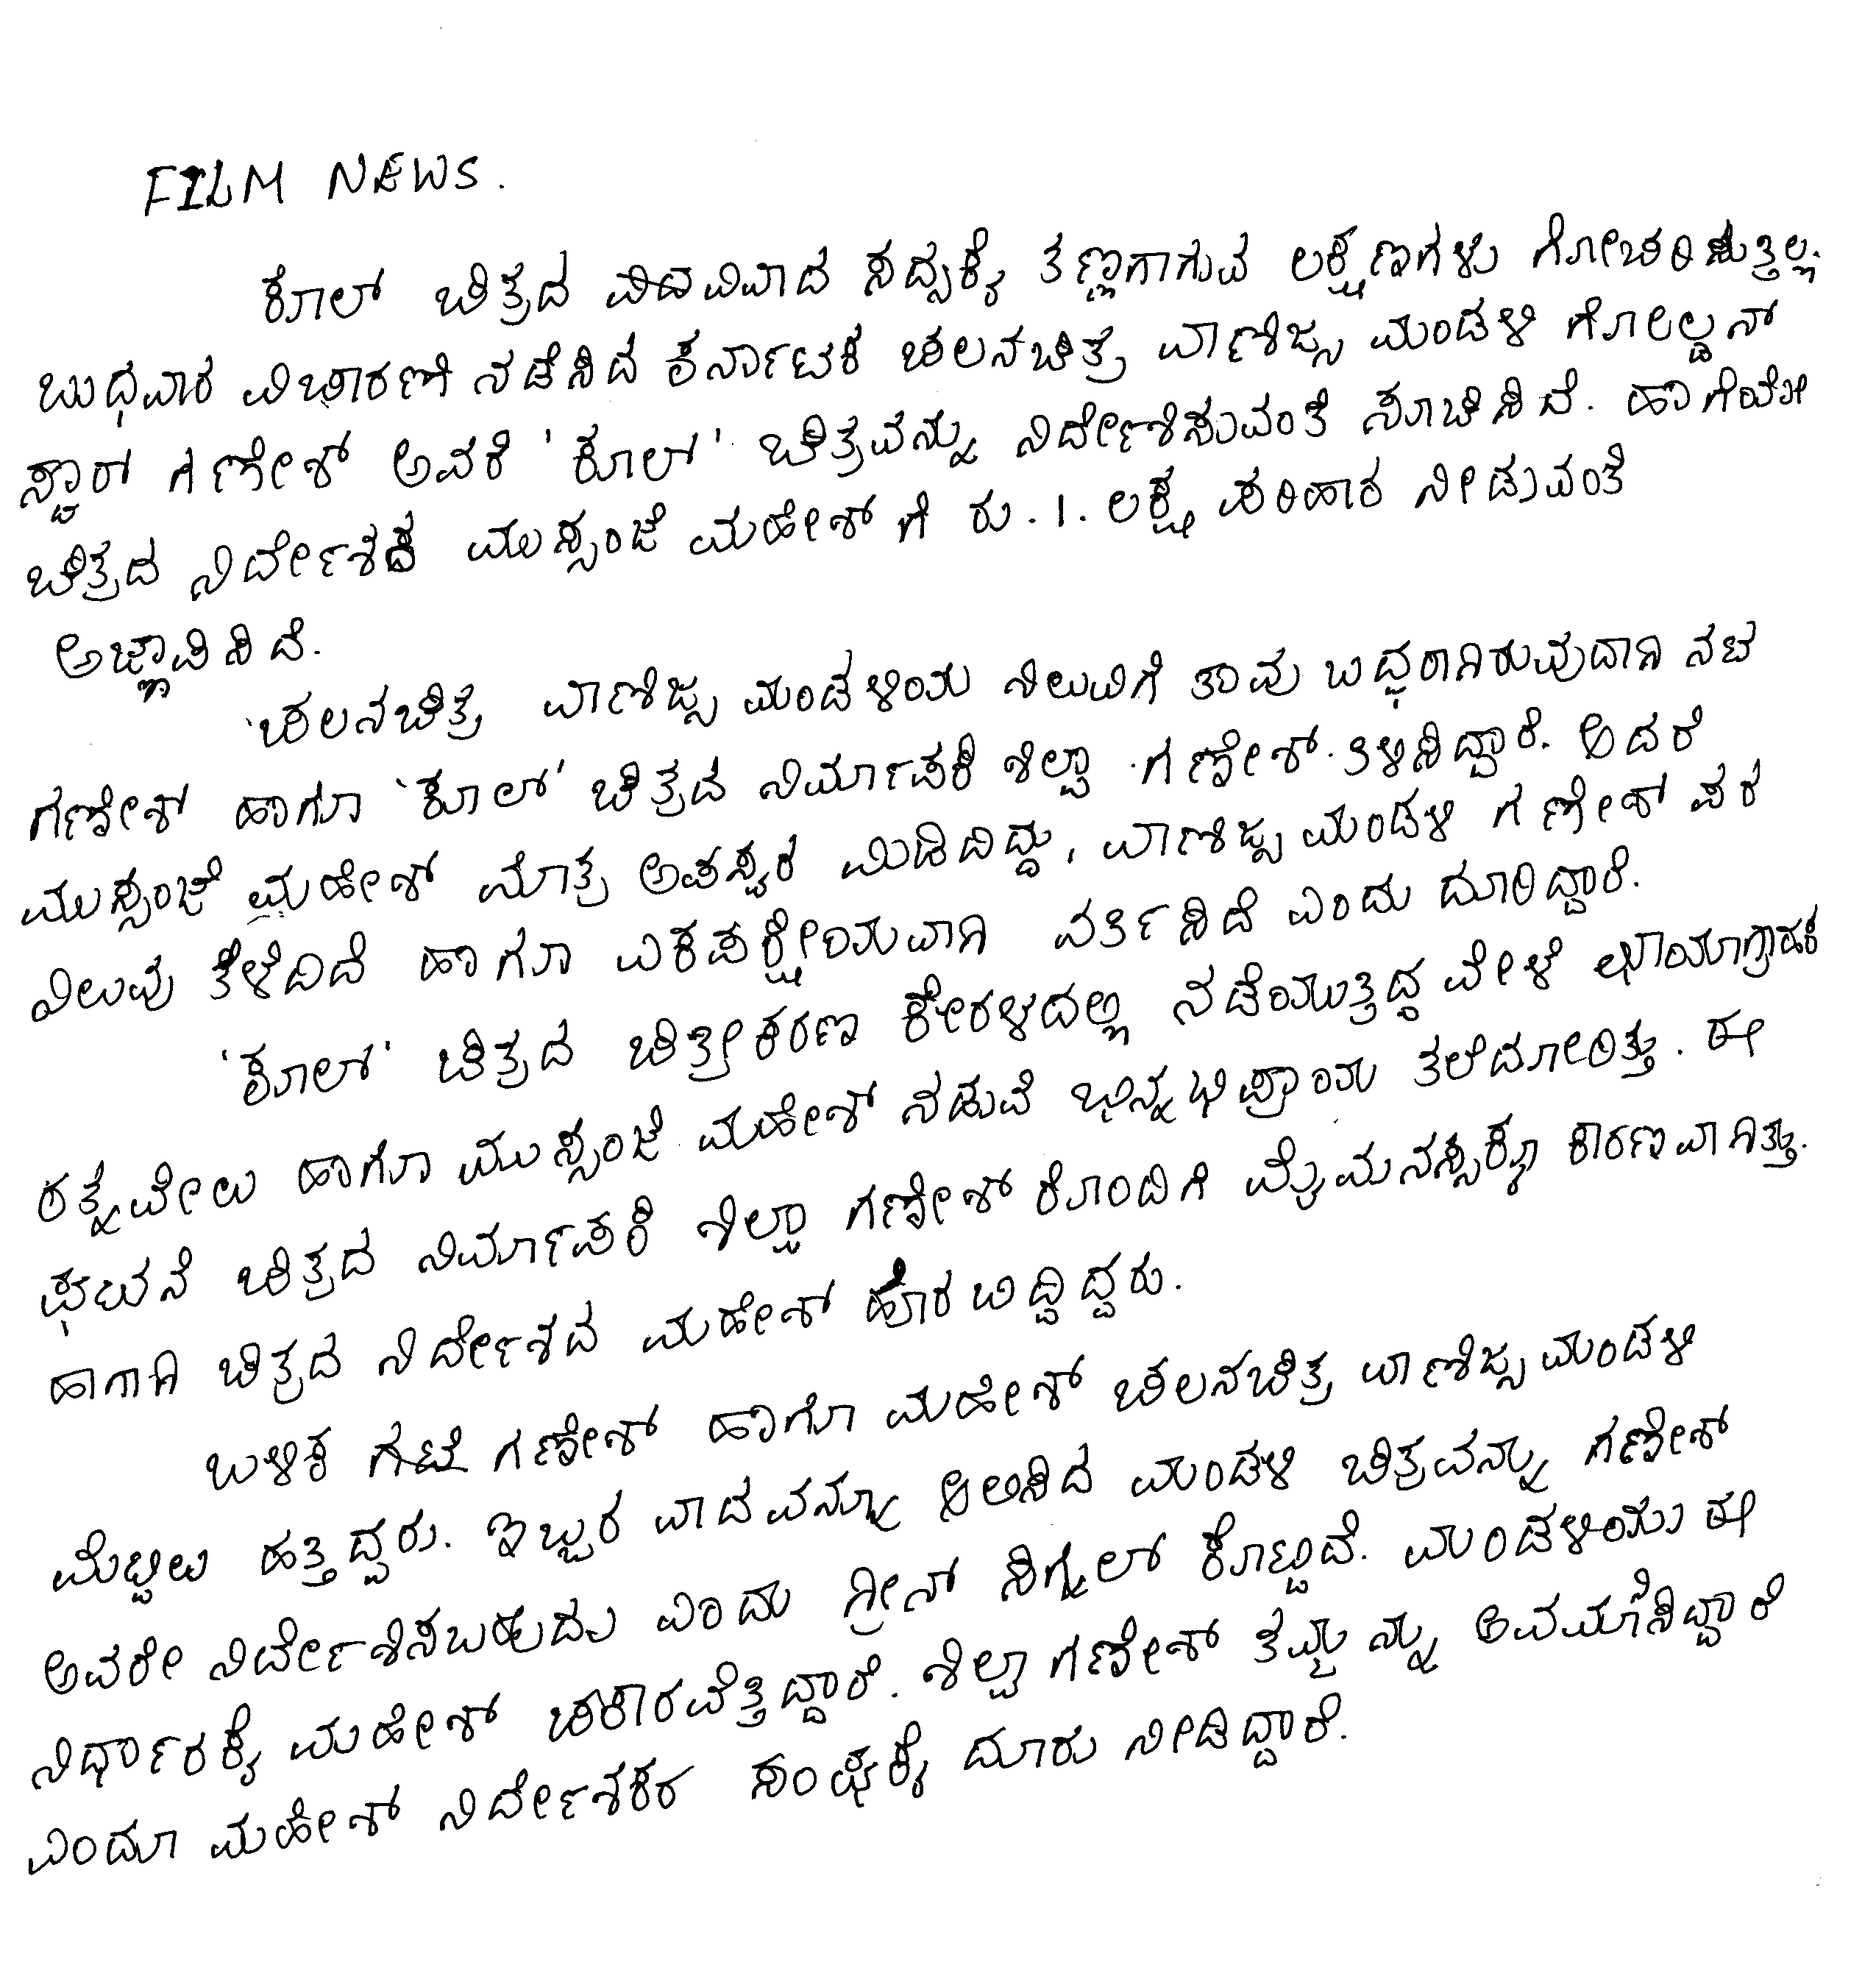 FILM NEWS.
ಕೂಲ್ ಚಿತ್ರದ ವಿವಾದ ಸದ್ಯಕ್ಕೆ ತಣ್ಣಗಾಗುವ ಲಕ್ಷಣಗಳು ಗೋಚರಿಸುತ್ತಿಲ್ಲ.
ಬುಧವಾರ ವಿಚಾರಣೆ ನಡೆಸಿದ ಕರ್ನಾಟಕ ಚಲನಚಿತ್ರ ವಾಣಿಜ್ಯ ಮಂಡಳಿ ಗೋಲ್ಡನ್
ಸ್ಟಾರ್ ಗಣೇಶ್ ಅವರಿಗೆ 'ಕೂಲ್' ಚಿತ್ರವನ್ನು ನಿರ್ದೇಶಿಸುವಂತೆ ಸೂಚಿಸಿದೆ. ಹಾಗೆಯೇ
ಚಿತ್ರದ ನಿರ್ದೇಶಕ ಮುಸ್ಸಂಜೆ ಮಹೇಶ್ ಗೆ ರು.1. ಲಕ್ಷ ಪರಿಹಾರ ನೀಡುವಂತೆ
ಅಜ್ಞಾಪಿಸಿದೆ.
'ಚಲನಚಿತ್ರ ವಾಣಿಜ್ಯ ಮಂಡಳಿಯ ನಿಲುವಿಗೆ ತಾವು ಬದ್ಧರಾಗಿರುವುದಾಗಿ ನಟ
ಗಣೇಶ್ ಹಾಗೂ 'ಕೂಲ್' ಚಿತ್ರದ ನಿರ್ಮಾಪಕಿ ಶಿಲ್ಪಾ ಗಣೇಶ್ ತಿಳಿಸಿದ್ದಾರೆ. ಆದರೆ
ಮುಸ್ಸಂಜೆ ಮಹೇಶ್ ಮಾತ್ರ ಅಪಸ್ವರ ಮಿಡಿದಿದ್ದು, ವಾಣಿಜ್ಯ ಮಂಡಳಿ ಗಣೇಶ್ ಪರ
ನಿಲುವು ತಳೆದಿದೆ ಹಾಗೂ ಏಕಪಕ್ಷೀಯವಾಗಿ ವರ್ತಿಸಿದೆ ಎಂದು ದೂರಿದ್ದಾರೆ.
'ಕೂಲ್' ಚಿತ್ರದ ಚಿತ್ರೀಕರಣ ಕೇರಳದಲ್ಲಿ ನಡೆಯುತ್ತಿದ್ದ ವೇಳೆ ಛಾಯಾಗ್ರಾಹಕ
ರತ್ನವೇಲು ಹಾಗೂ ಮುಸ್ಸಂಜೆ ಮಹೇಶ್ ನಡುವೆ ಭಿನ್ನಭಿಪ್ರಾಯ ತಲೆದೋರಿತ್ತು. ಈ
ಘಟನೆ ಚಿತ್ರದ ನಿರ್ಮಾಪಕಿ ಶಿಲ್ಪಾ ಗಣೇಶ್ ರೊಂದಿಗೆ ವೈಮನಸ್ಸಕ್ಕೂ ಕಾರಣವಾಗಿತ್ತು.
ಹಾಗಾಗಿ ಚಿತ್ರದ ನಿರ್ದೇಶದ ಮಹೇಶ್ ಹೊರಬಿದ್ದಿದ್ದರು.
ಬಳಿಕ ಗಣೇಶ್ ಹಾಗೂ ಮಹೇಶ್ ಚಲನಚಿತ್ರ ವಾಣಿಜ್ಯ ಮಂಡಳಿ
ಮೆಟ್ಟಿಲು ಹತ್ತಿದ್ದರು. ಇಬ್ಬರ ವಾದವನ್ನೂ ಆಲಿಸಿದ ಮಂಡಳಿ ಚಿತ್ರವನ್ನು ಗಣೇಶ್
ಅವರೇ ನಿರ್ದೇಶಿಸಬಹುದು ಎಂದು ಗ್ರೀನ್ ಸಿಗ್ನಲ್ ಕೊಟ್ಟಿದೆ. ಮಂಡಳಿಯು ಈ
ನಿರ್ಧಾರಕ್ಕೆ ಮಹೇಶ್ ಚಕಾರವೆತ್ತಿದ್ದಾರೆ. ಶಿಲ್ಪಾ ಗಣೇಶ್ ತಮ್ಮನ್ನು ಅವಮಾನಿಸಿದ್ದಾರೆ
ಎಂದೂ ಮಹೇಶ್ ನಿರ್ದೇಶಕರ ಸಂಘಕ್ಕೆ ದೂರು ನೀಡಿದ್ದಾರೆ.